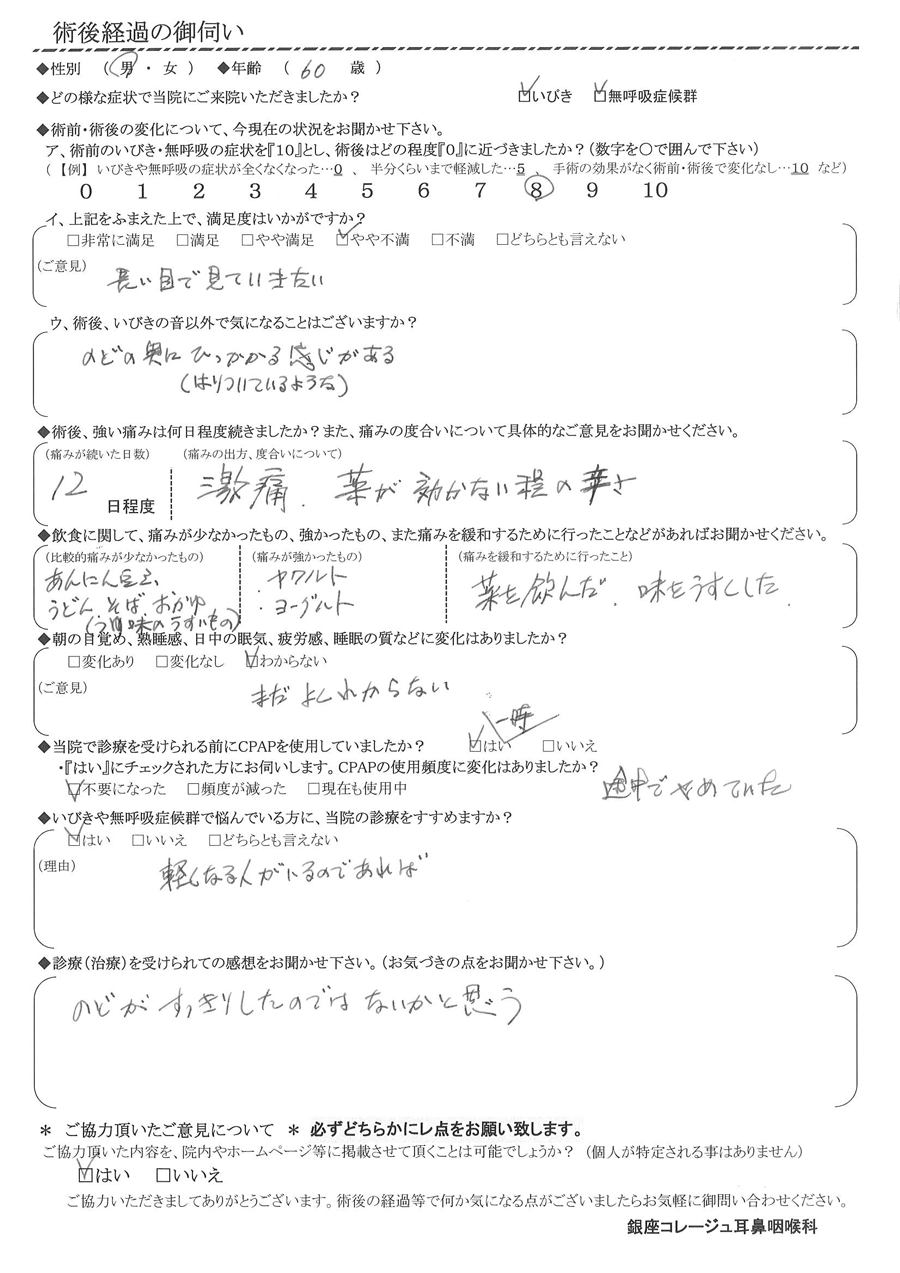 術後経過の御伺い
◆性別 （ 男 ・ 女 ） ◆年齢 （ 60 歳 ）
◆どの様な症状で当院にご来院いただきましたか？ ☑いびき ☑無呼吸症候群
◆術前・術後の変化について、今現在の状況をお聞かせ下さい。
ア、術前のいびき・無呼吸の症状を『10』とし、術後はどの程度『0』に近づきましたか？（数字を○で囲んで下さい）
（ 【例】 いびきや無呼吸の症状が全くなくなった…0 、 半分くらいまで軽減した…5 、 手術の効果がなく術前・術後で変化なし…10 など）
0 1 2 3 4 5 6 7 8 9 10
イ、上記をふまえた上で、満足度はいかがですか？
□非常に満足 □満足 □やや満足 ☑やや不満 □不満 □どちらとも言えない
（ご意見）
長い目で見ていきたい
ウ、術後、いびきの音以外で気になることはございますか？
のどの奥にひっかかる感じがある
（はりついているような）
◆術後、強い痛みは何日程度続きましたか？また、痛みの度合いについて具体的なご意見をお聞かせください。
（痛みが続いた日数） （痛みの出方、度合いについて）
12 日程度 激痛．薬が効かない程の辛さ
◆飲食に関して、痛みが少なかったもの、強かったもの、また痛みを緩和するために行ったことなどがあればお聞かせください。
（比較的痛みが少なかったもの） （痛みが強かったもの） （痛みを緩和するために行ったこと）
あんにん豆腐、 ・ヤクルト 薬を飲んだ．味をうすくした．
うどん、そば、おかゆ ・ヨーグルト
味のうすいもの）
◆朝の目覚め、熟睡感、日中の眠気、疲労感、睡眠の質などに変化はありましたか？
□変化あり □変化なし ☑わからない
（ご意見）
まだよくわからない
一時
◆当院で診療を受けられる前にCPAPを使用していましたか？ ☑はい □いいえ
・『はい』にチェックされた方にお伺いします。CPAPの使用頻度に変化はありましたか？
☑不要になった □頻度が減った □現在も使用中 途中でやめていた
◆いびきや無呼吸症候群で悩んでいる方に、当院の診療をすすめますか？
☑はい □いいえ □どちらとも言えない
（理由）
軽くなる人がいるのであれば
◆診療（治療）を受けられての感想をお聞かせ下さい。（お気づきの点をお聞かせ下さい。）
のどがすっきりしたのではないかと思う
＊ ご協力頂いたご意見について ＊ 必ずどちらかにレ点をお願い致します。
ご協力頂いた内容を、院内やホームページ等に掲載させて頂くことは可能でしょうか？ （個人が特定される事はありません）
☑はい □いいえ
ご協力いただきましてありがとうございます。術後の経過等で何か気になる点がございましたらお気軽に御問い合わせください。
銀座コレージュ耳鼻咽喉科